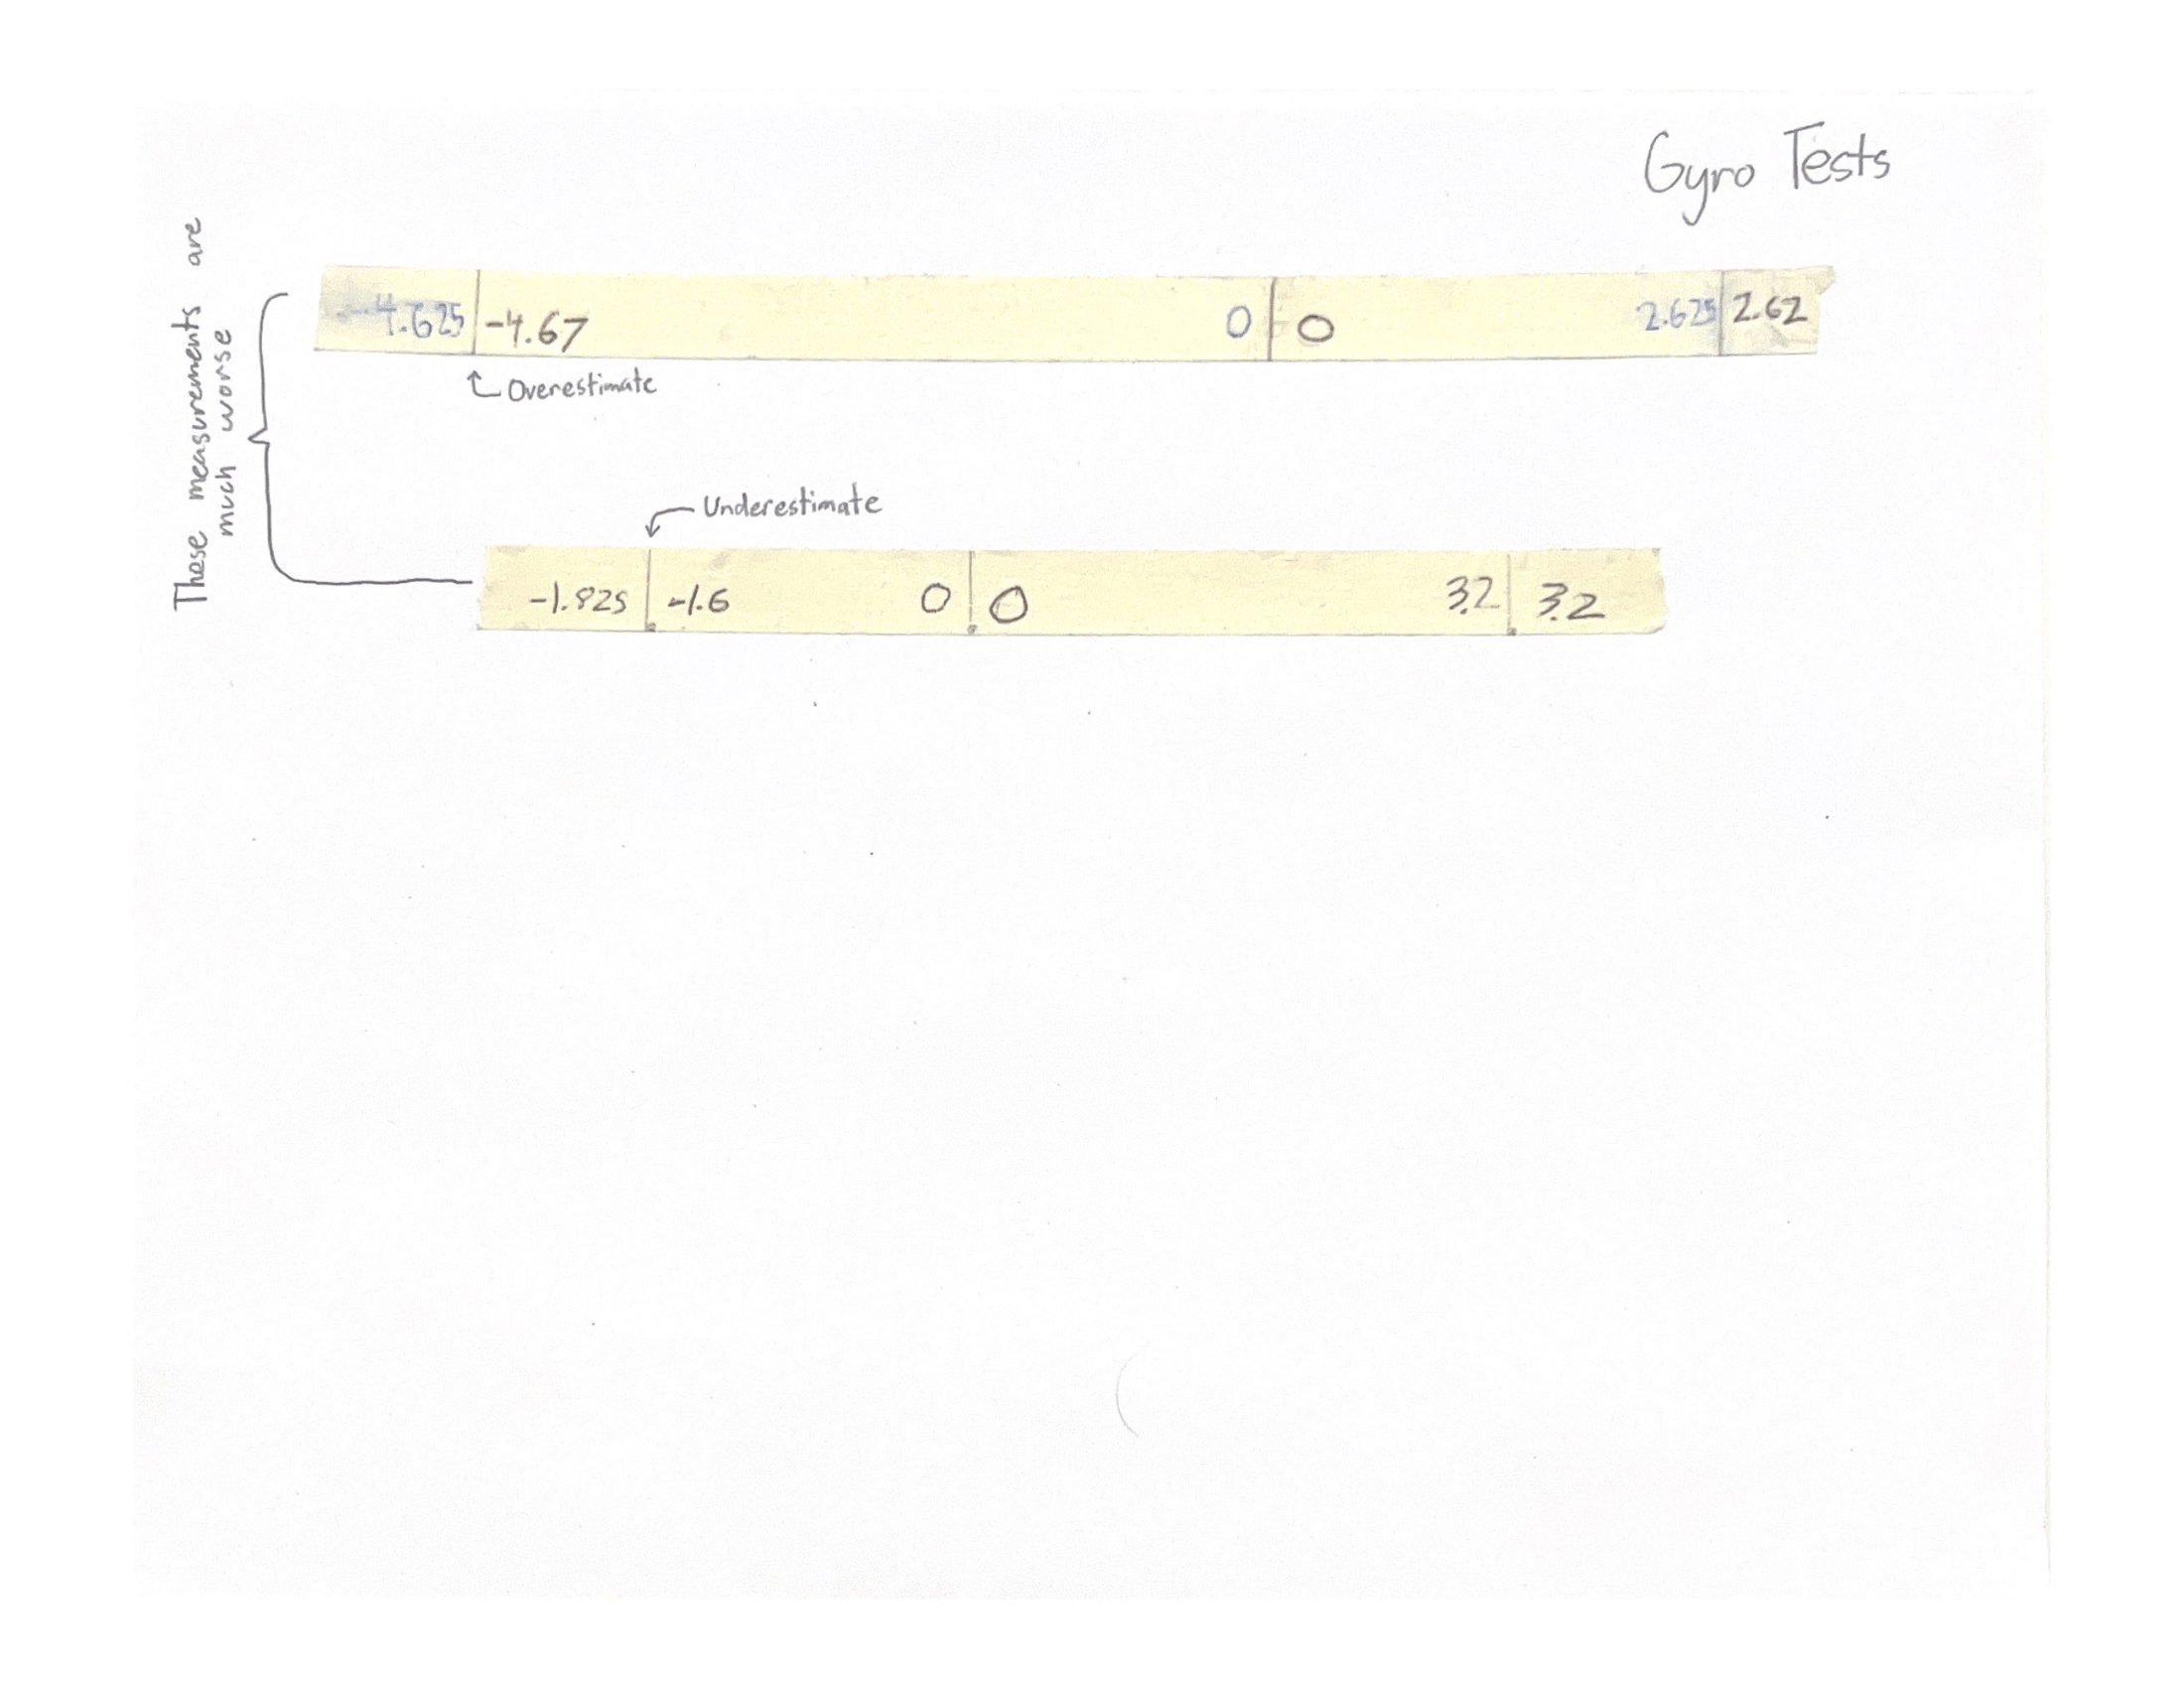 Gyro Tests
These measurements are
much worse
-4.625 -4.67 0 0 2.625 2.62
Overestimate
Underestimate
-1.825 -1.6 0 0 3.2 3.2